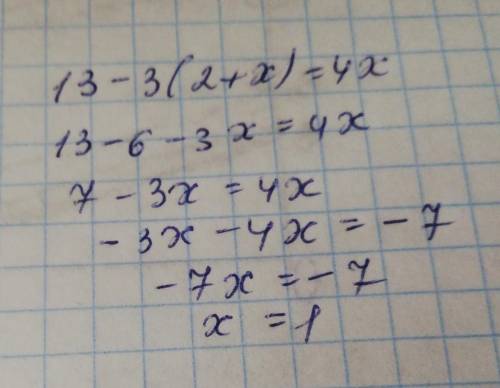 13 - 3(2+x) = 4x
13 - 6 - 3x = 4x
7 - 3x = 4x
- 3x - 4x = - 7
- 7x = - 7
x = 1